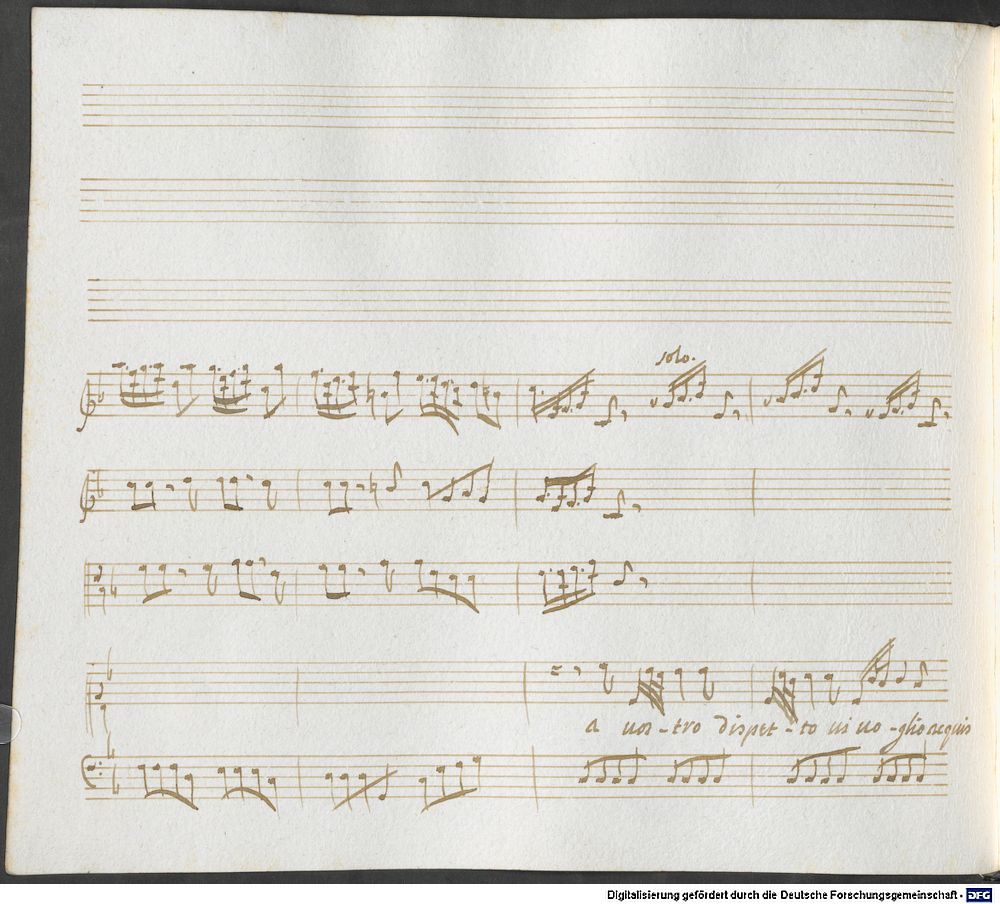 solo.
a uos-tro dispet-to ui uo-glio acquis
Digitalisierung gefördert durch die Deutsche Forschungsgemeinschaft - DFG